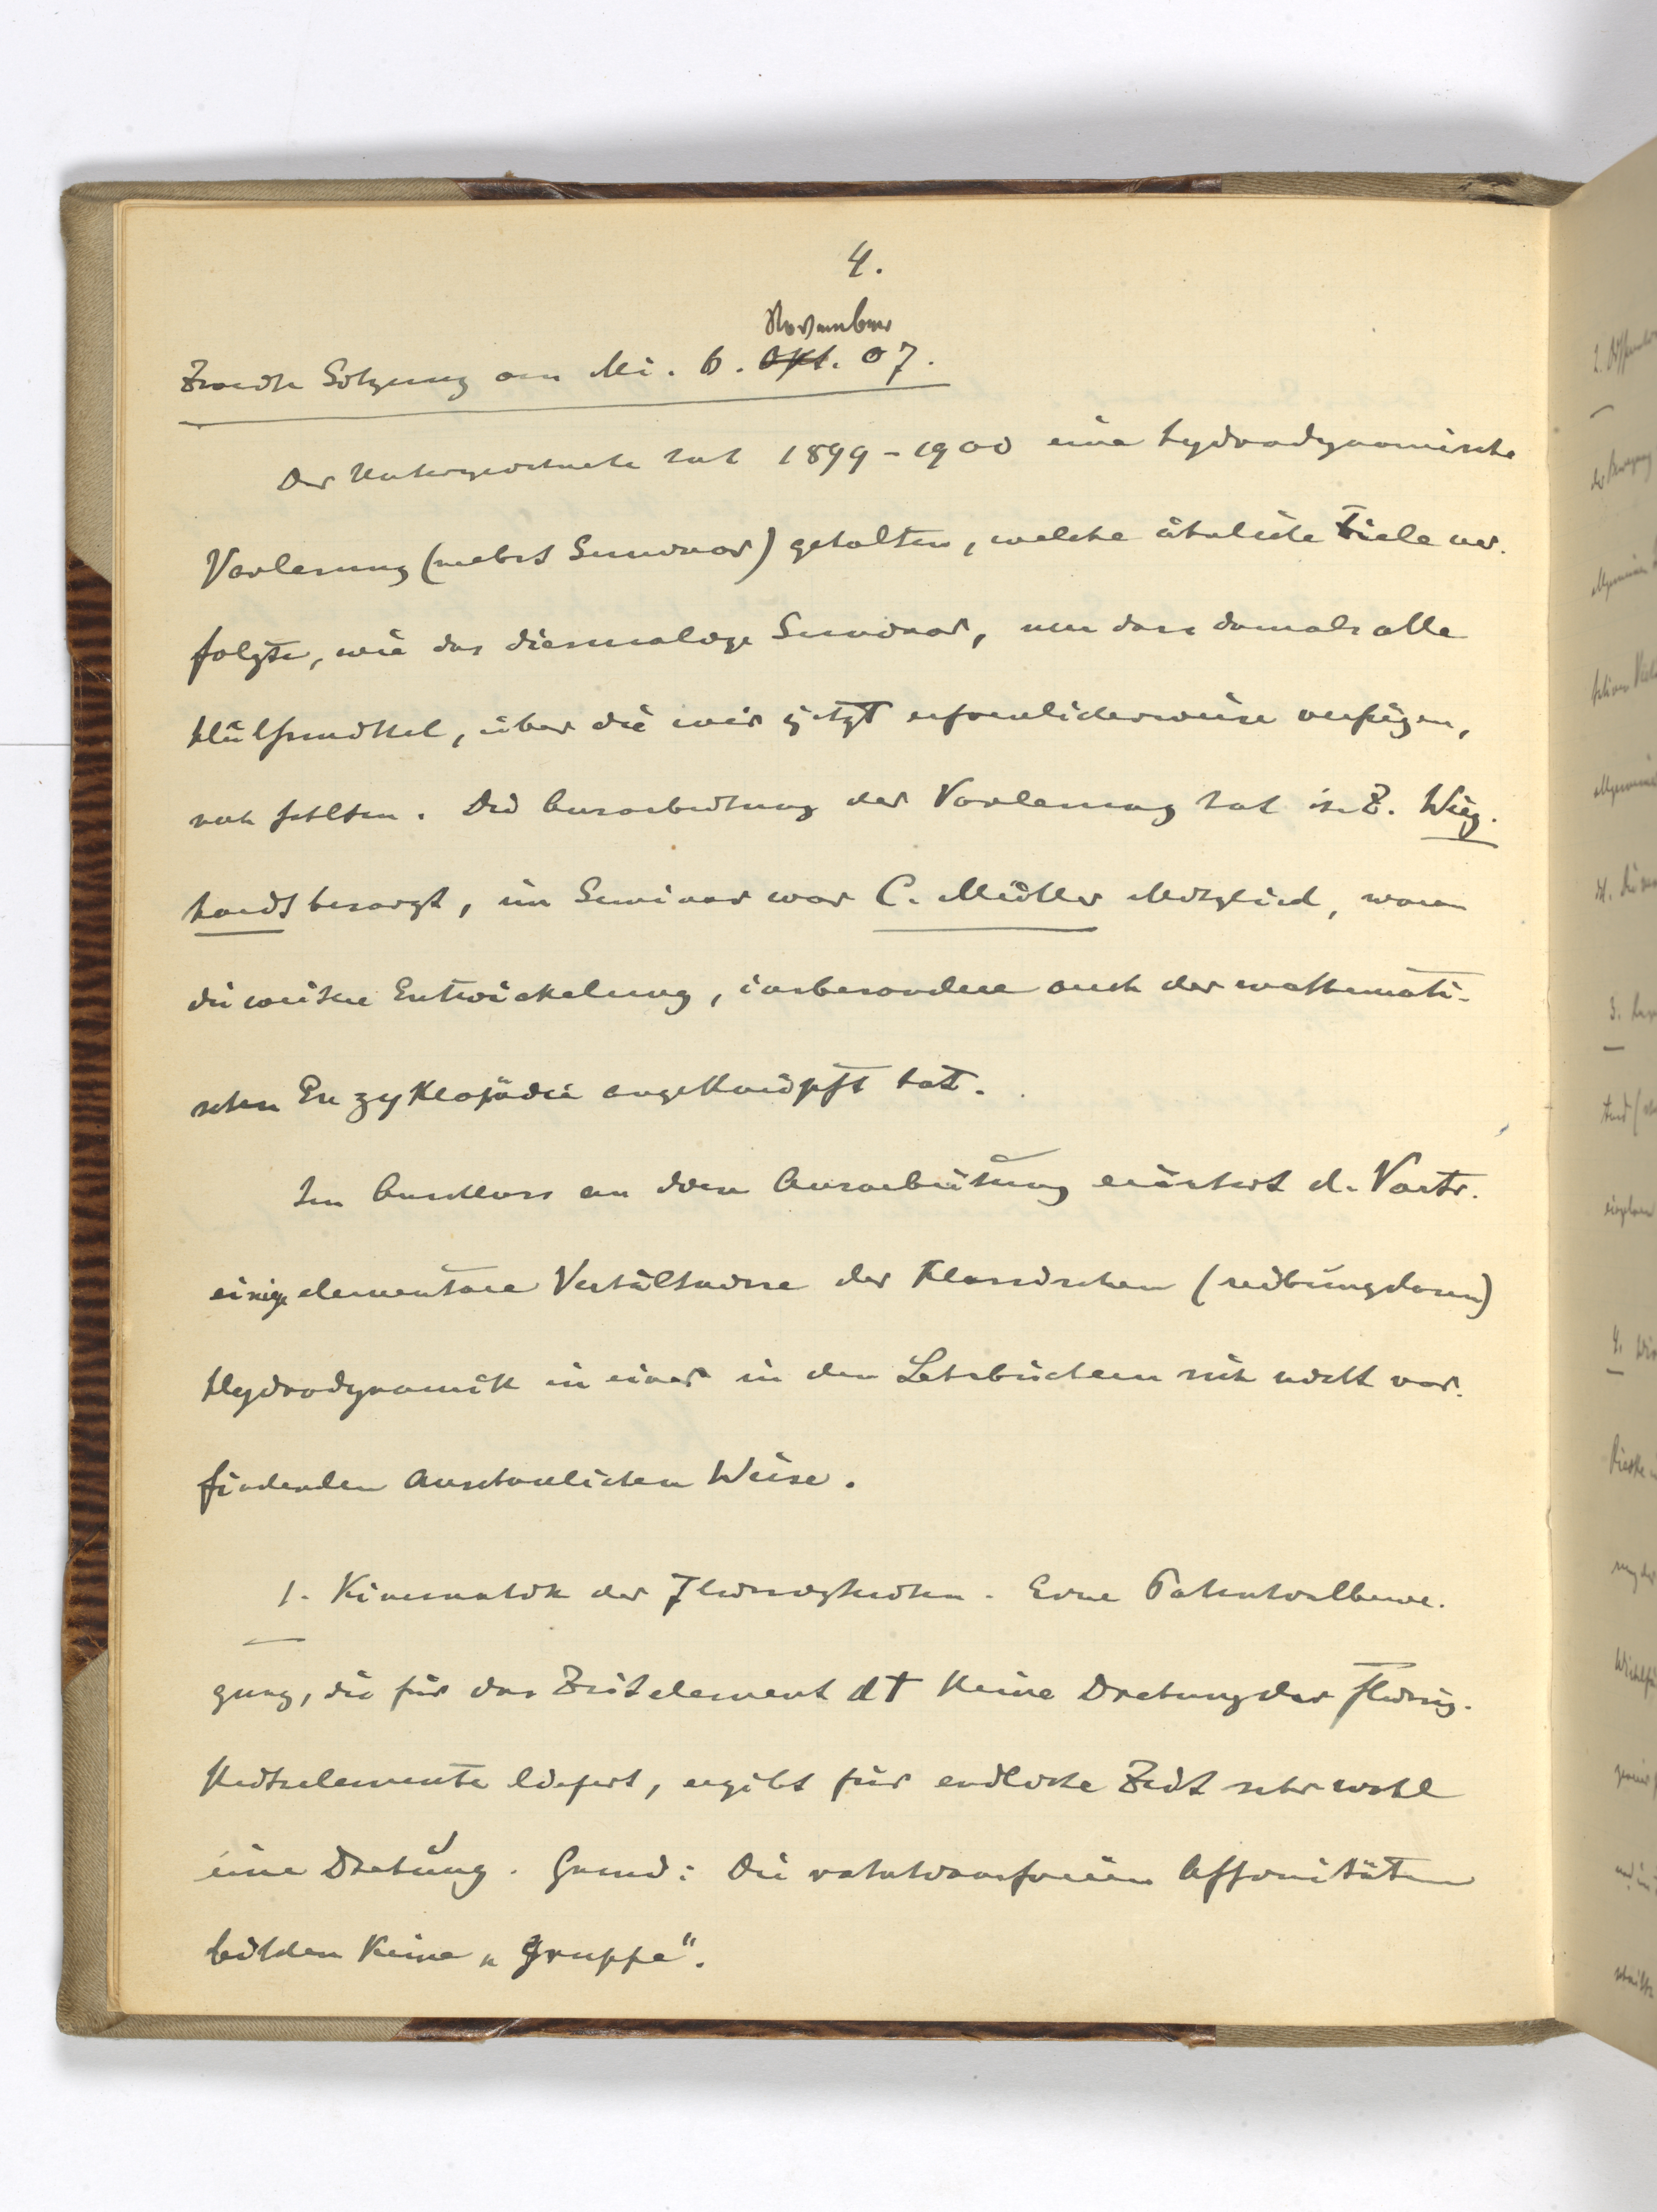 4.
November
Zweite Sitzung am Mi. 6. Okt. 07.
Der Unterzeichnete hat 1899-1900 eine hydrodynamische
Vorlesung (nebst Seminar) gehalten, welche ähnliche Ziele ver-
folgte, wie das diesmalige Seminar, nur dass damals alle
Hülfsmittel, über die wir jetzt erfreulicherweise verfügen,
noch fehlten. Die Ausarbeitung der Vorlesung hat s. Z. Wieg-
hardt besorgt, im Seminar war C. Müller Mitglied, woran
die weitere Entwickelung, insbesondere auch der mathemati-
schen Enzyklopädie angeknüpft hat.
Im Anschluss an diese Ausarbeitung erörtert d. Vortr.
einige elementare Verhältnisse der klassischen (reibungslosen)
Hydrodynamik in einer in den Lehrbüchern sich nicht vor-
findenden anschaulichen Weise.
1. Kinematik der Flüssigkeiten. Eine Potentialbewe-
gung, die für das Zeitelement dt keine Drehung der Flüssig-
keitselemente liefert, ergibt für endliche Zeit sehr wohl
eine Drehung. Grund: Die rotationsfreien Affinitäten
bilden keine „Gruppe“.